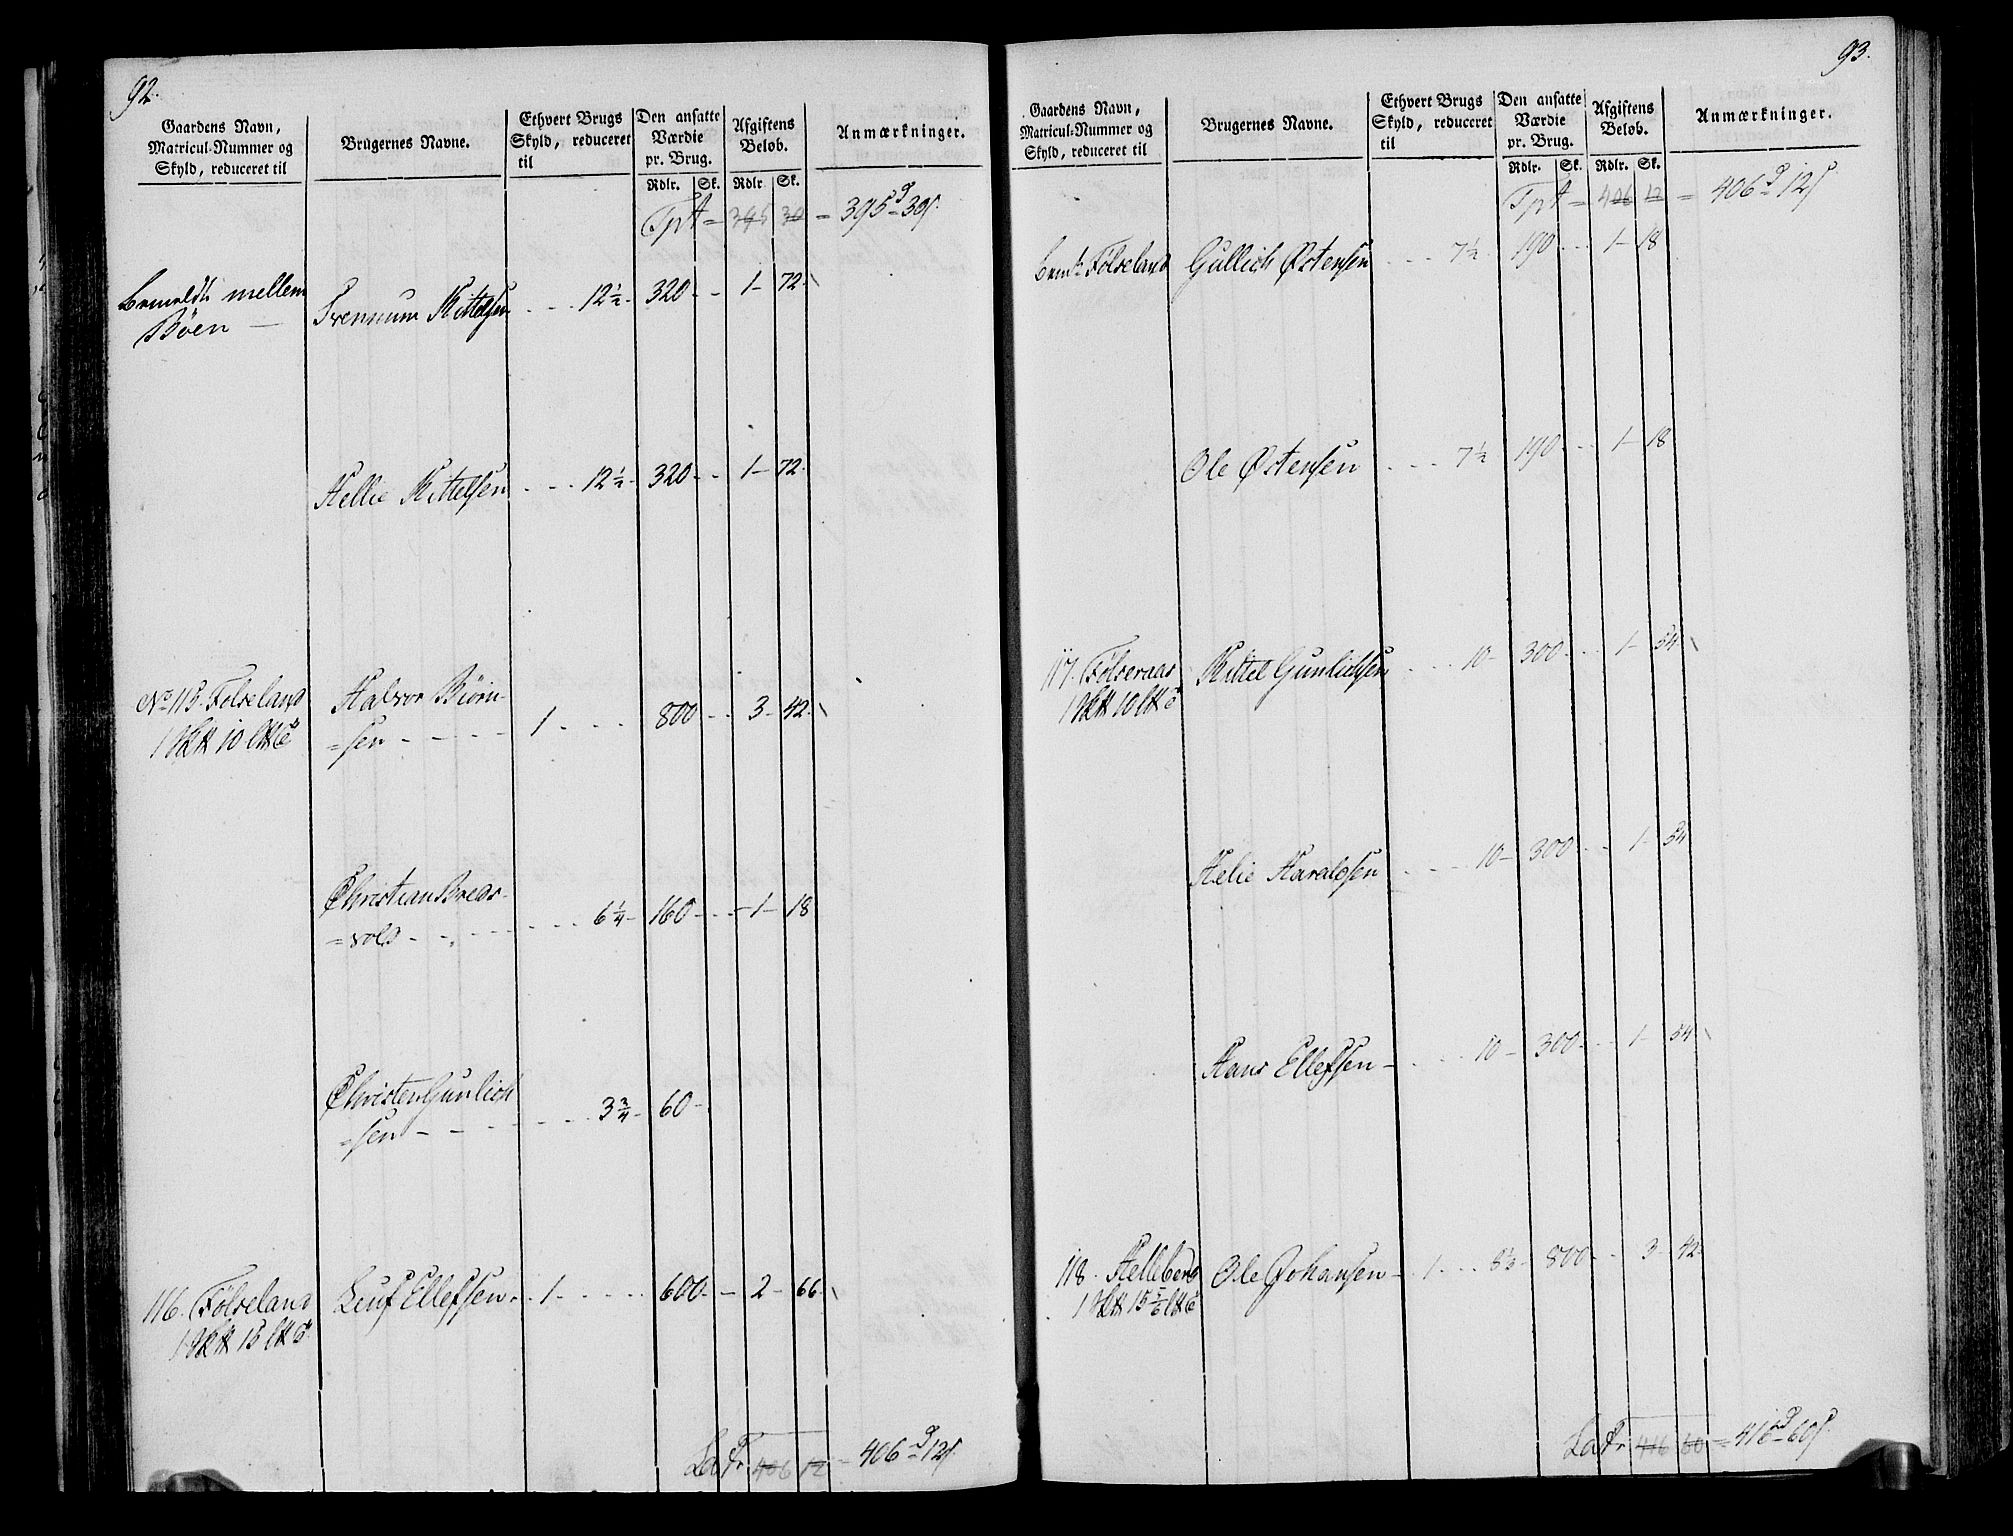 92.
Gaardens Navn, Matricul-Nummer og Skyld, reduceret til
Brugernes Navne.
Ethvert Brugs Skyld, reduceret til
Den ansatte Værdie pr. Brug.
Afgiftens Beløb.
Anmærkninger.
Rdlr. Sk. Rdlr. Sk.
Tpt = 395 30 = 395 d 30 s.
Bemeldte mellem
Bøen — Svennum Kittelsen 12½ - 320 - - 1 - 72
Hellie Kittelsen 12½ - 320 - - 1 - 72.
No 115. Folseland Halvor Biørn-
1 10 =sen 1 800 - - 3 - 42.
Christian Breds-
=vold 6¼ - 160 - - 1 - 18
Christen Gunlich
=sen 3¾ - 60 -
116. Følseland Leuf Ellefsen 1 600 - - 2 - 66
1 15
Lat. 406 12 = 406 d 12 s.
93.
Gaardens Navn, Matricul-Nummer og Skyld, reduceret til
Brugernes Navne.
Ethvert Brugs Skyld, reduceret til
Den ansatte Værdie pr. Brug.
Afgiftens Beløb.
Anmærkninger.
Rdlr. Sk. Rdlr. Sk.
Tpt = 406 12 = 406 d 12 s.
Bemte Følseland Gullich Østensen 7½ - 190 - - 1 - 18
Ole Østensen 7½ - 190 - - 1 - 18
117. Følseraas Kittel Gunlichsen 10 - 300 - - 1 - 54
1 10
Helie Haraldsen 10 - 300 - - 1 - 54
Hans Ellefsen - 10 - 300 - - 1 - 54
118. Helleberg Ole Johansen - 1 8⅓ - 800 - - 3 - 42
1 15⅚
Lat. 416 60 = 416 d 60 s.